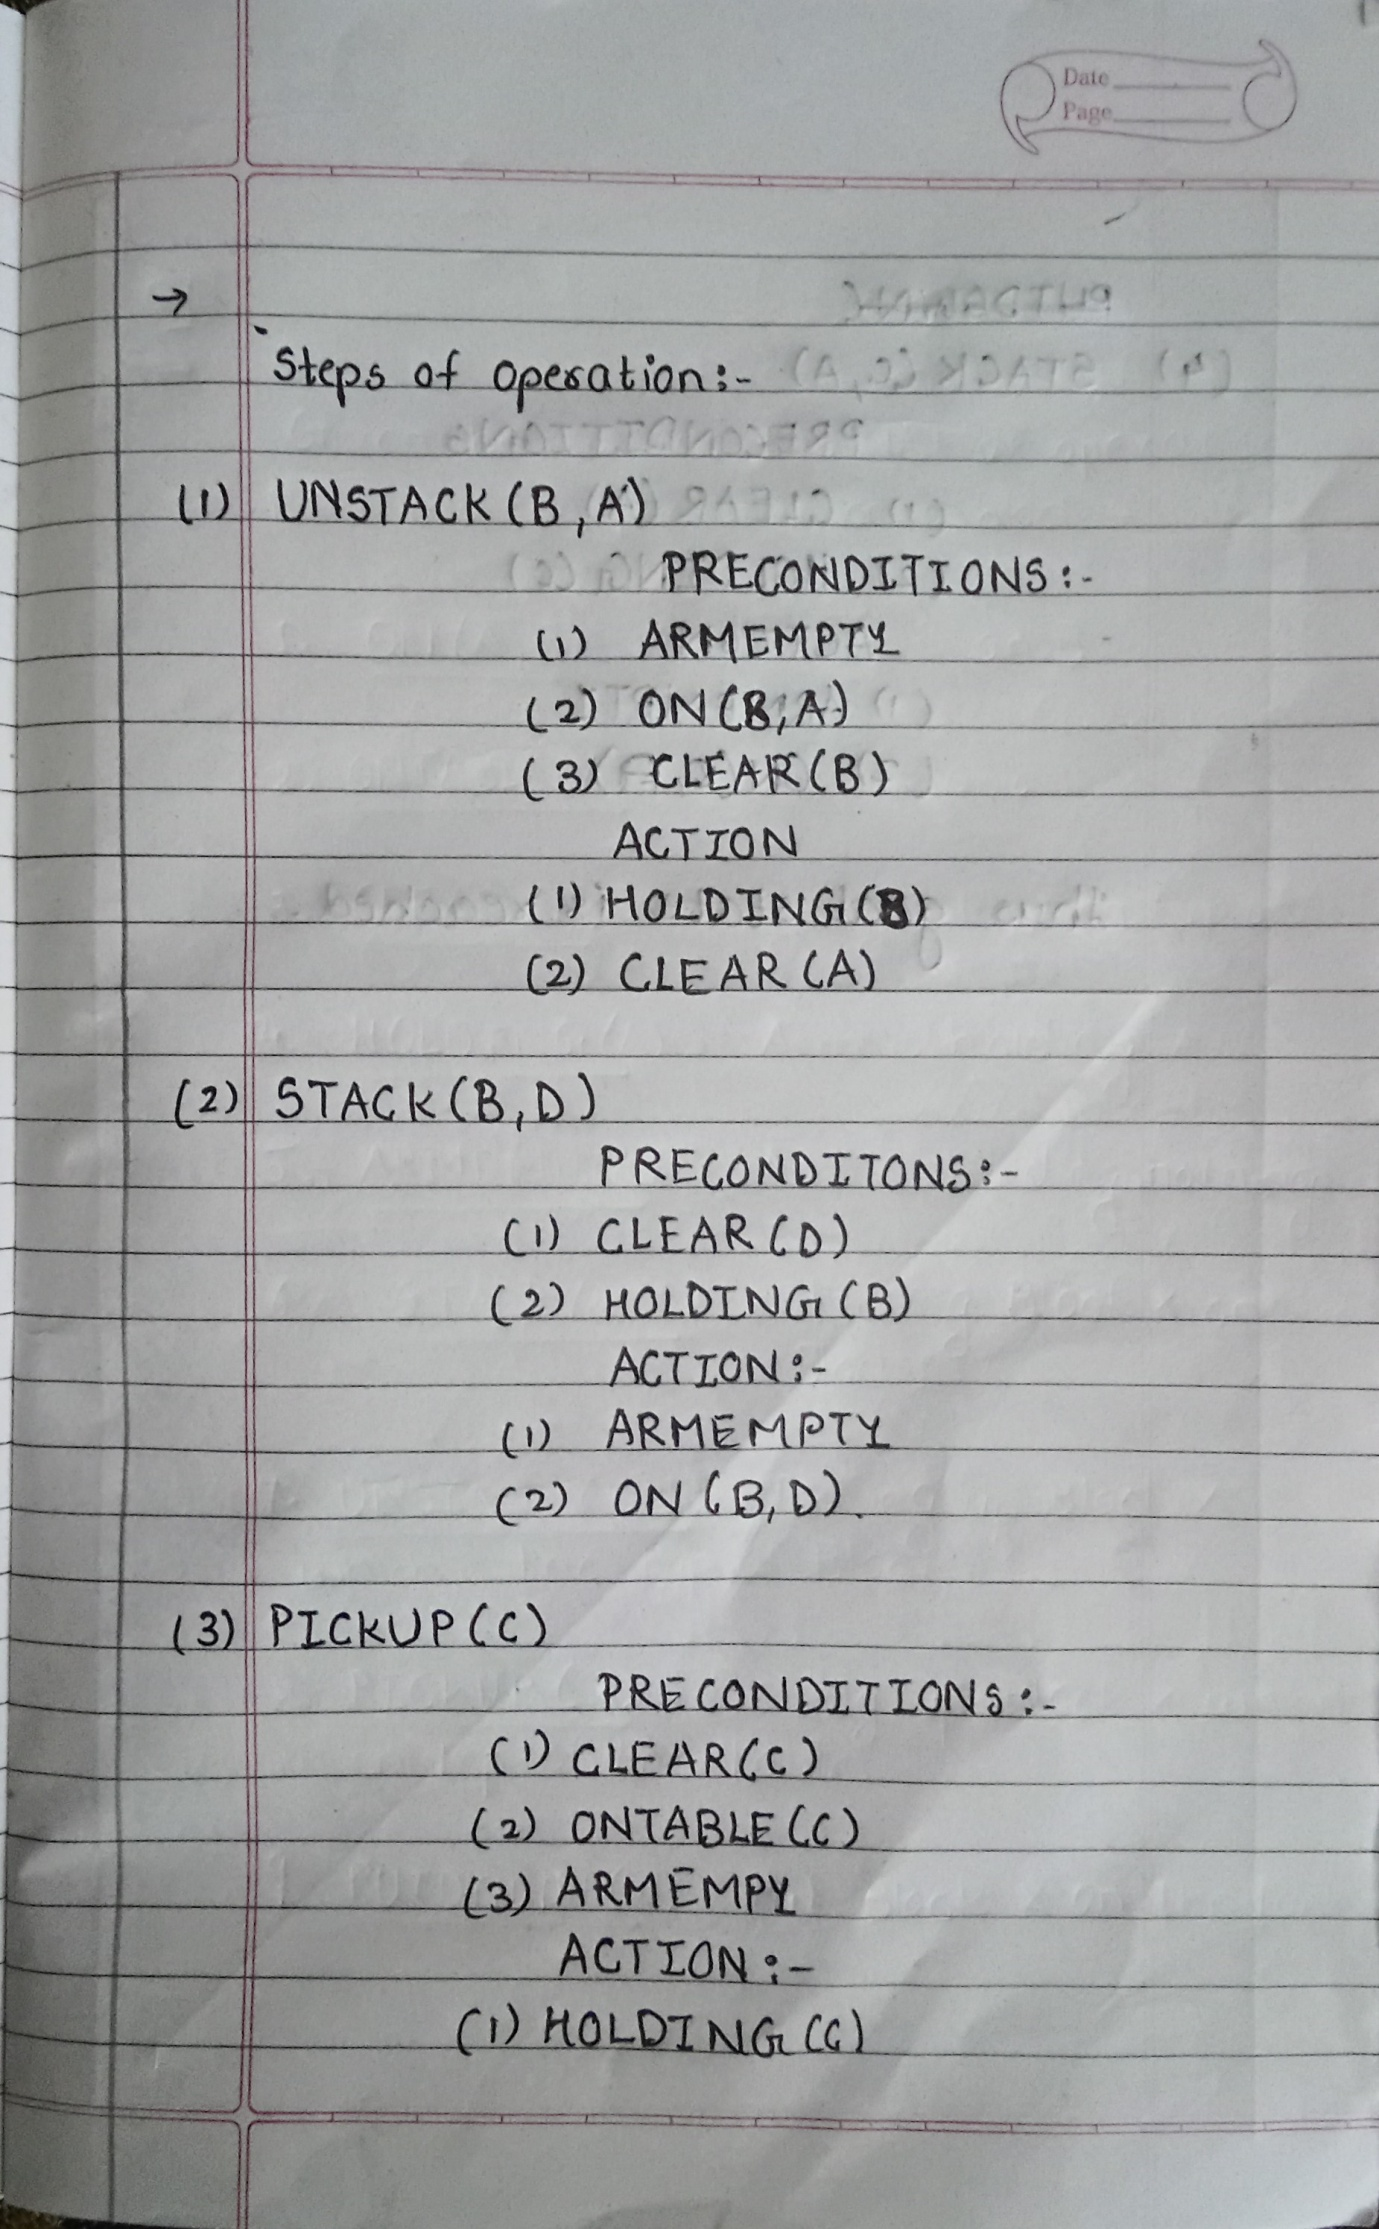 Date
Page
→
Steps of operation:-
(1) UNSTACK (B, A)
PRECONDITIONS :-
(1) ARMEMPTY
(2) ON (B, A)
(3) CLEAR (B)
ACTION
(1) HOLDING (B)
(2) CLEAR (A)
(2) STACK (B, D)
PRECONDITONS :-
(1) CLEAR (D)
(2) HOLDING (B)
ACTION :-
(1) ARMEMPTY
(2) ON (B, D).
(3) PICKUP (C)
PRECONDITIONS :-
(1) CLEAR (C)
(2) ONTABLE (C)
(3) ARMEMPY
ACTION :-
(1) HOLDING (C)